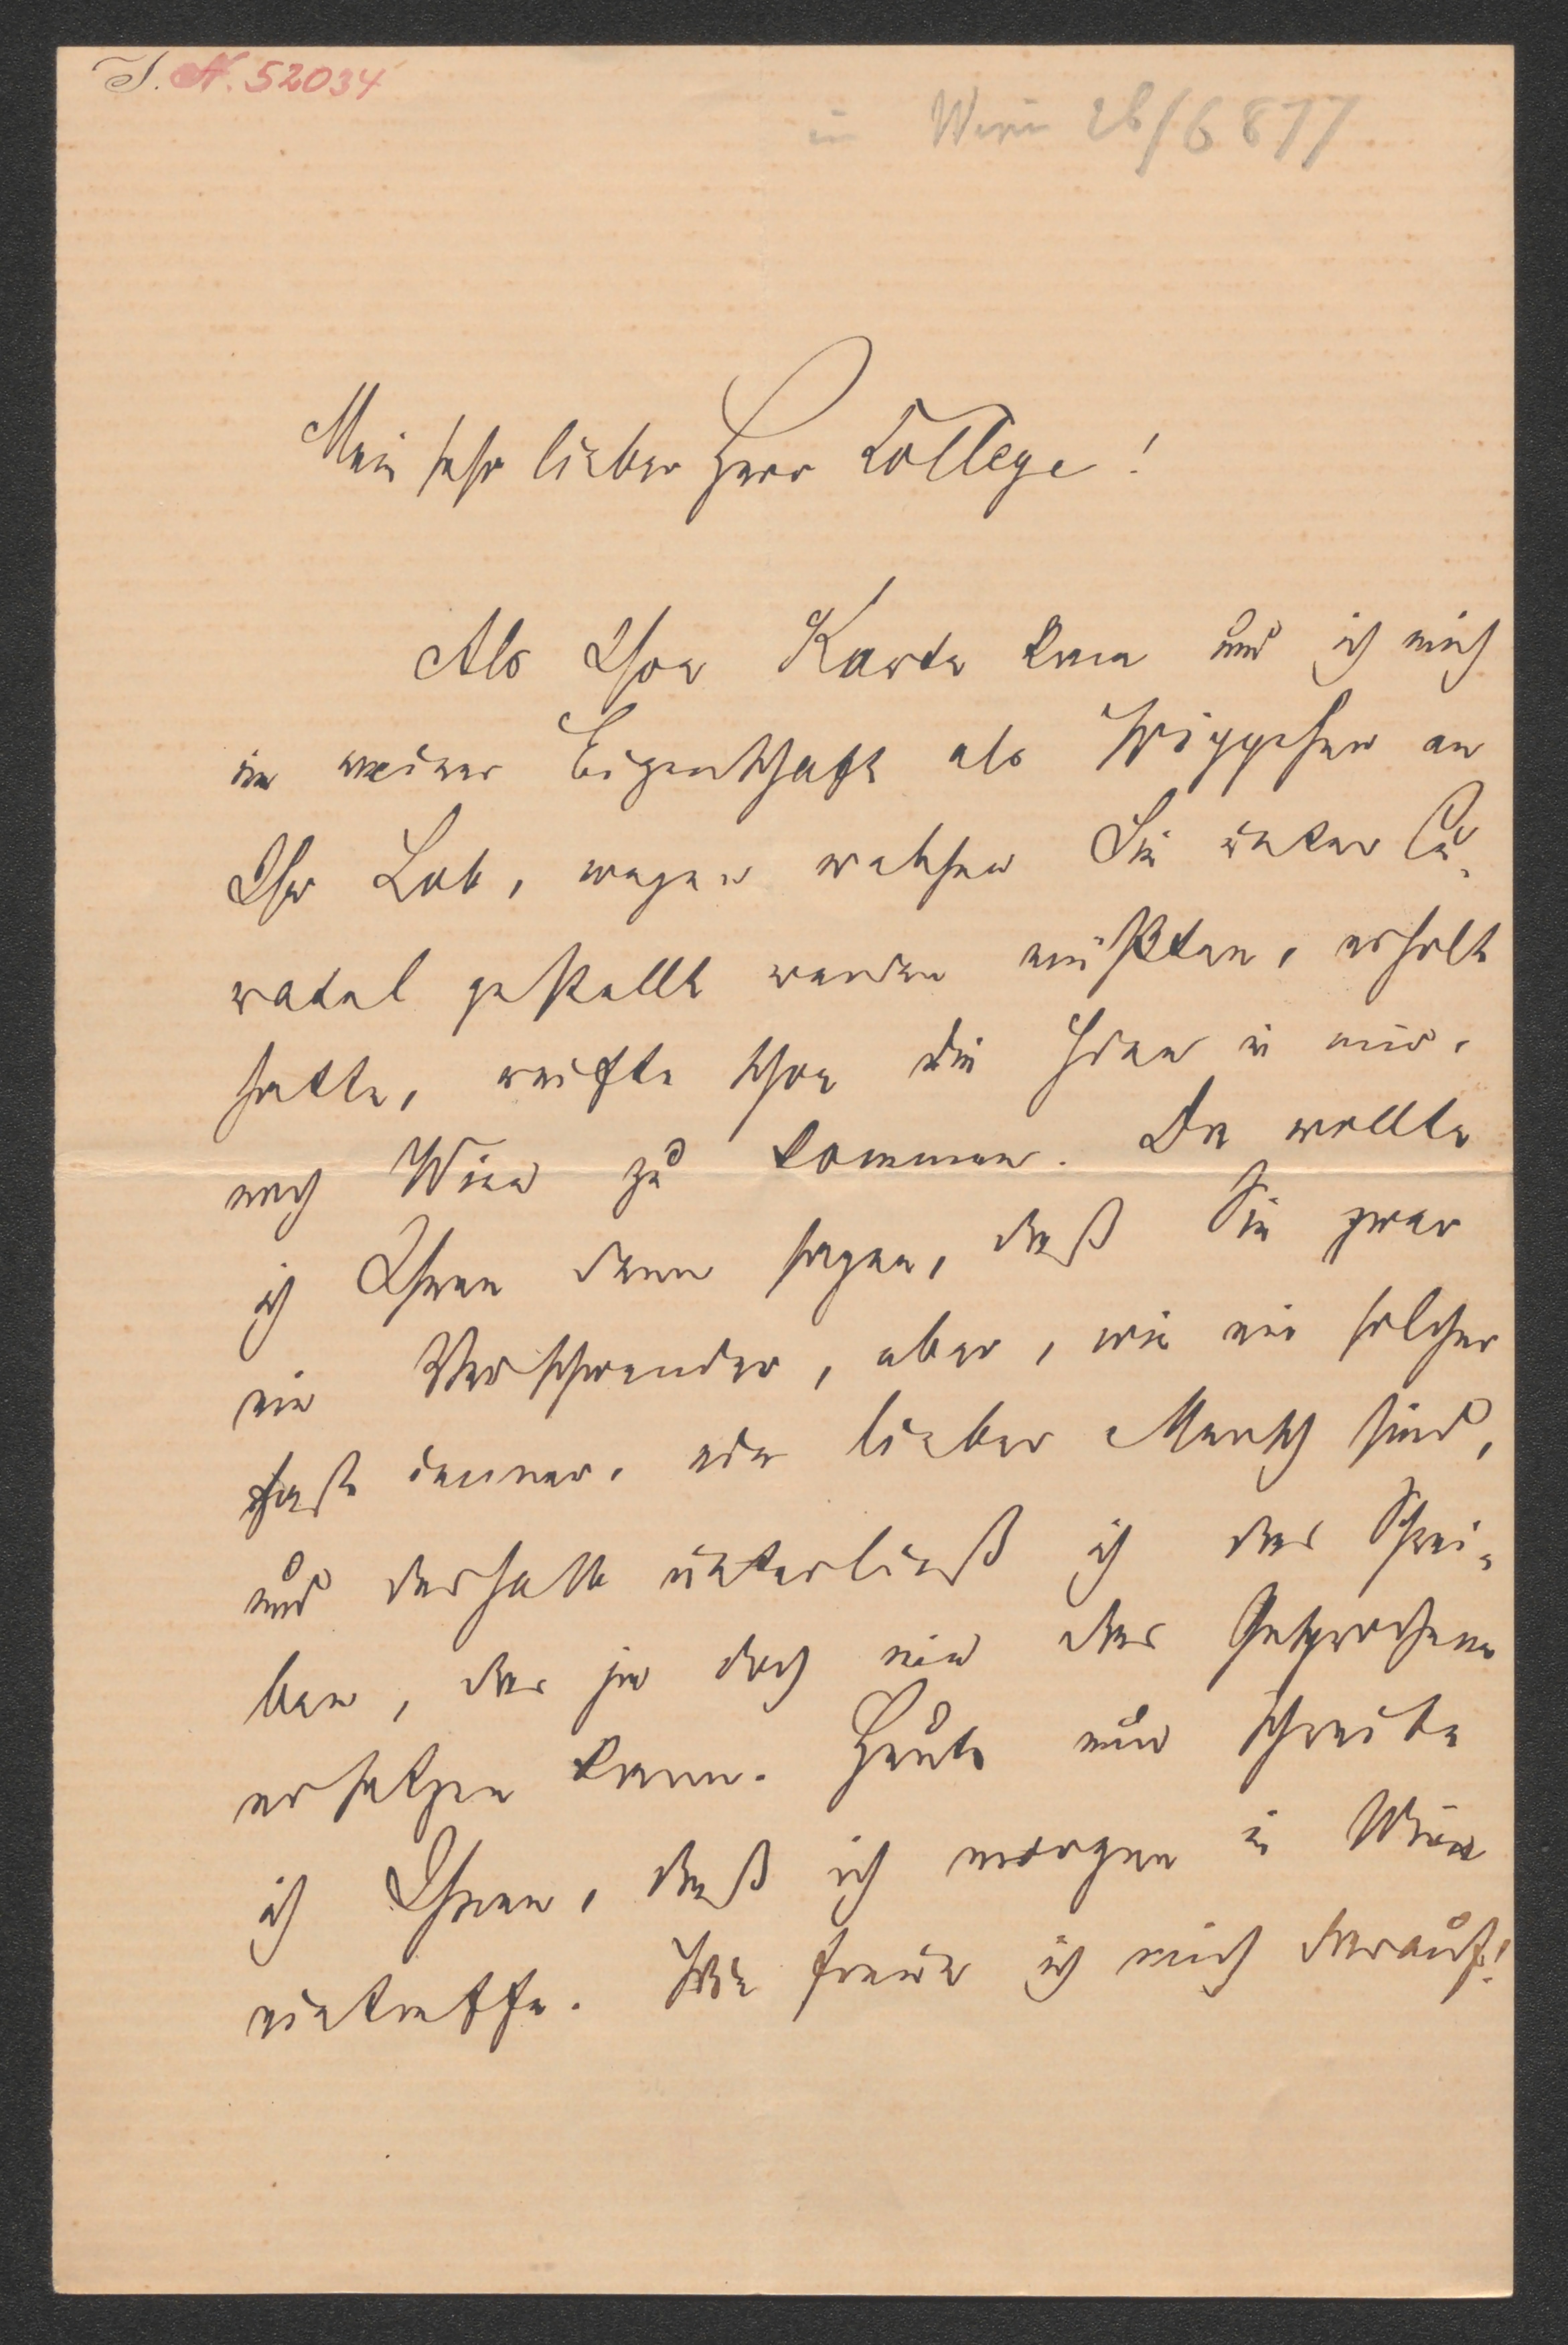 I. N. 52034
in Wien 26/6 877
Mein sehr lieber Herr College!
Als Ihre Karte kam und ich mich
in meiner Eigenschaft als Wippchen an
Ihr Lob, wegen welchen Sie unter Cu-
ratel gestellt werden müßten, erholt
hatte, reifte schon die Idee in mir,
nach Wien zu kommen. Da wollte
ich Ihnen dann sagen, daß Sie zwar
ein Verschwender, aber, wie ein solcher
fast immer, ein lieber Mensch sind,
und deshalb unterließ ich das Schrei-
ben, das ja doch nie das Gesprochene
ersetzen kann. Heute nun schreibe
ich Ihnen, daß ich morgen in Wien
eintreffe. Wie freue ich mich darauf!